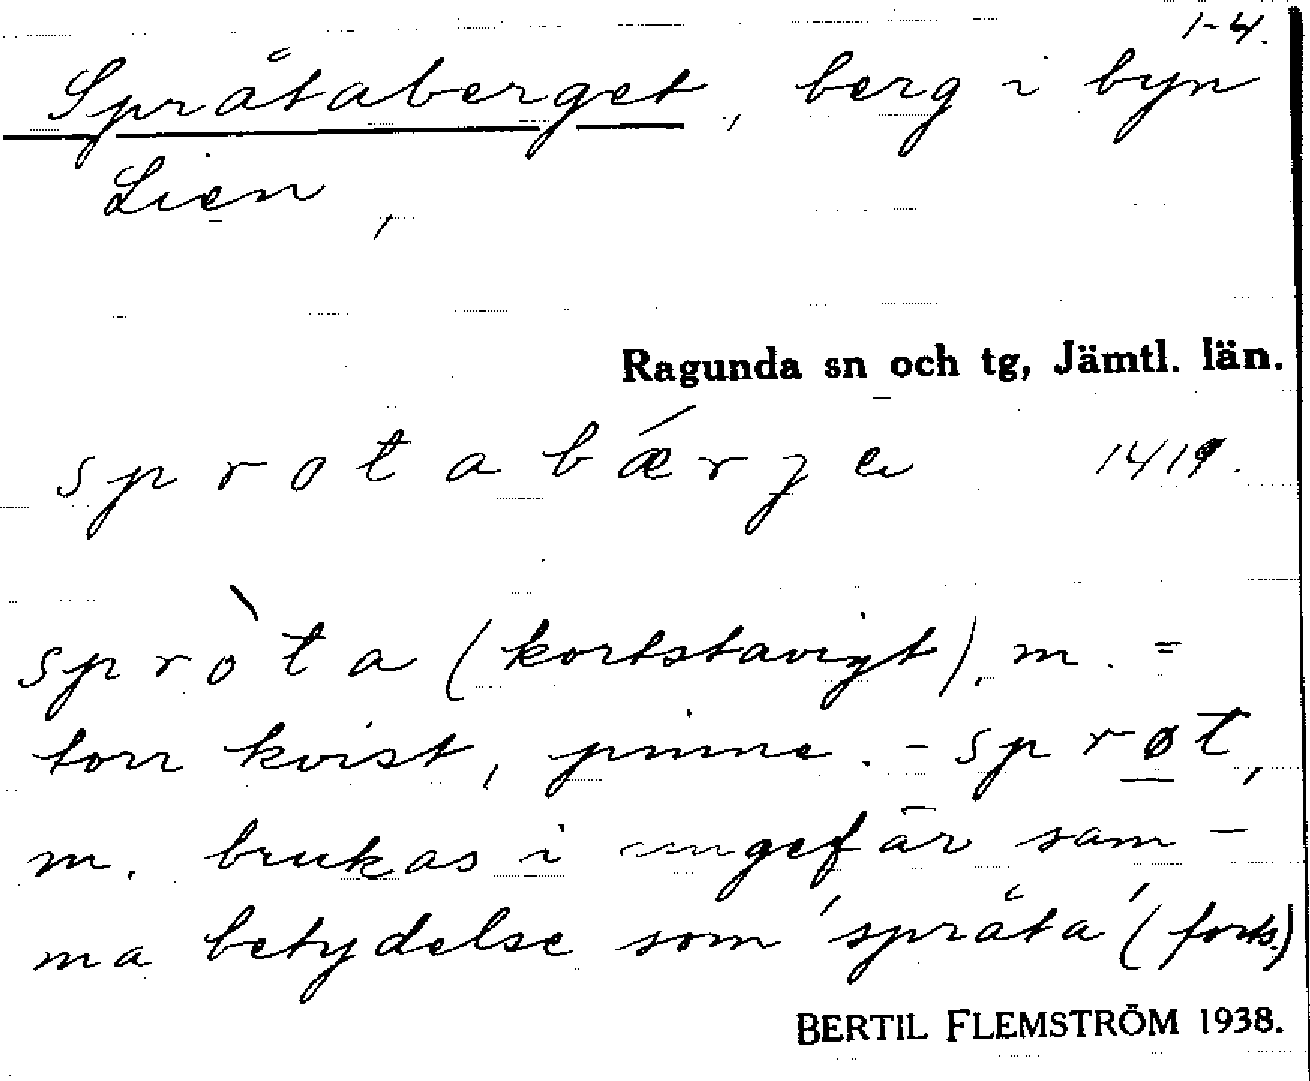 1-4.
Språtaberget, berg i byn
Lien,
Ragunda sn och tg, Jämtl. län.
sprotabǽrje 1419.
spròta (kortstavigt), m. =
torr kvist, pinne. - sprøt,
m. brukas i ungefär sam-
ma betydelse som 'språta' (forts.)
BERTIL FLEMSTRÖM 1938.